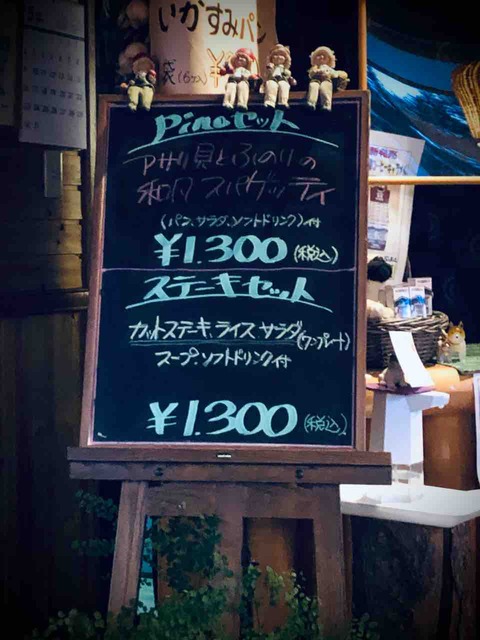 いかすみパン
Pinoセット
アサリ貝とふのりの
和風スパゲッティ
(パン、サラダ、ソフトドリンク)付
¥1.300(税込)
ステーキセット
カットステーキ、ライス、サラダ(ワンプレート)
スープ、ソフトドリンク付
¥1.300(税込)